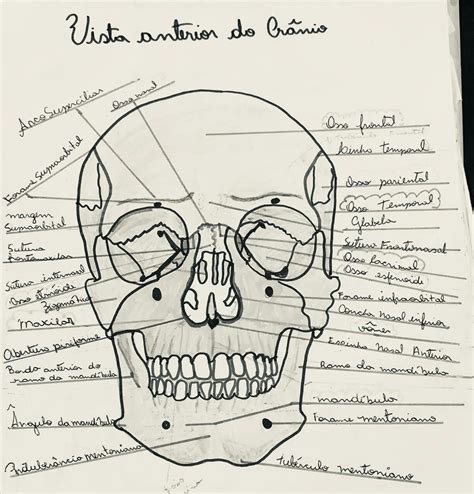 Vista anterior do Crânio
Arco Superciliar
Osso nasal
Forame Supraorbital
margem
Supraorbital
Sutura
Sutura internasal
Osso etmóide
Zigomático
Maxilar
Abertura piriforme
Bordo anterior do
ramo da mandíbula
Ângulo da mandíbula
Protuberância mentoniana
Osso frontal
Linha temporal
Osso parietal
Osso Temporal
Glabela
Sutura Frontonasal
Osso lacrimal
Osso esfenoide
Forame infraorbital
Concha nasal inferior
vômer
Espinha Nasal Anterior
Ramo da mandíbula
mandíbula
Forame mentoniano
tubérculo mentoniano